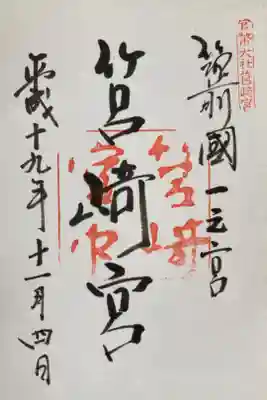 官幣大社筥崎宮
筑前國一之宮
筥崎宮
平成十九年十一月四日